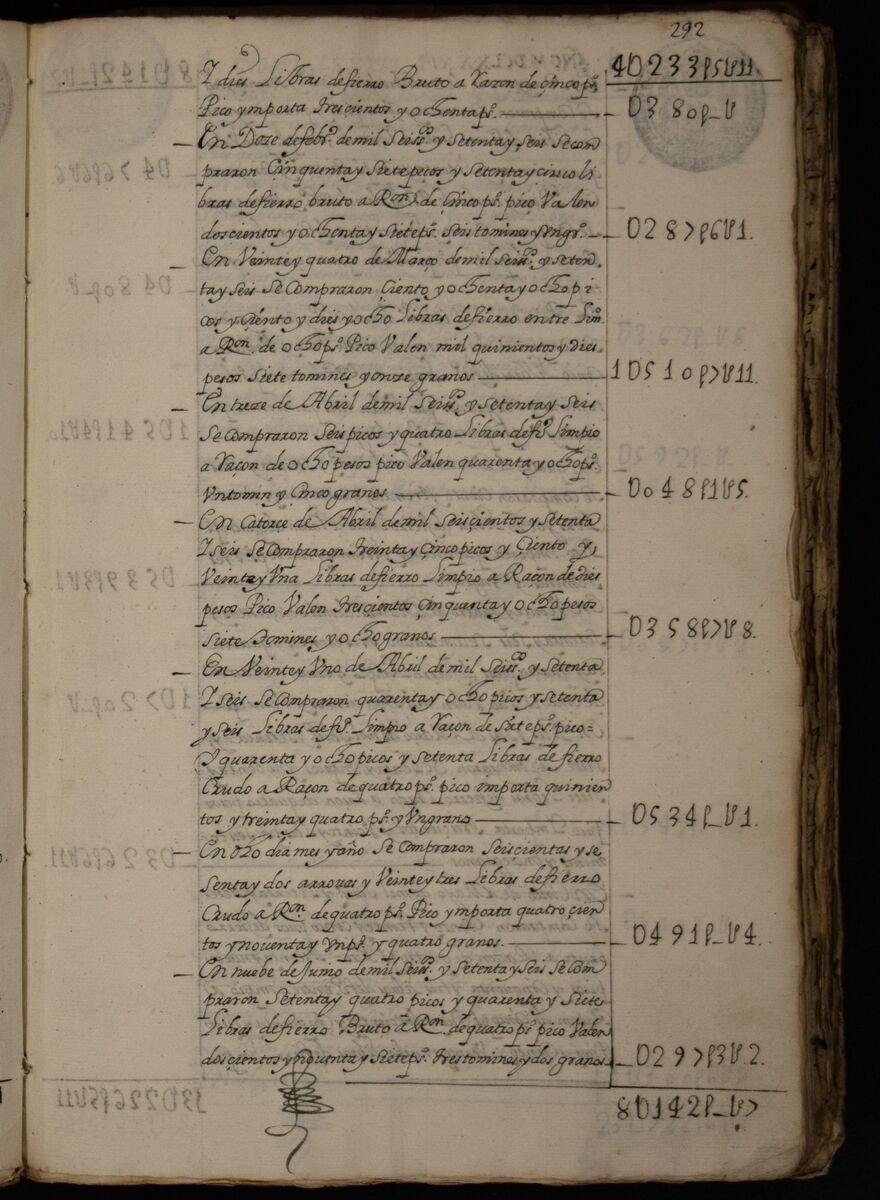 292
4U233p5U11.
Y dies Libras defierro Bruto a razon de çinco ps.
Pico ymporta trescientos y ochenta ps. U380p_U
En Doze defebro. demil Seisos. y Setenta y Seis Secom
praron Cinquenta y Siete pecos y Setenta y cinco li
bras defierro bruto a Ron. de Cinco ps. pico Valen
doscientos y ochenta y Siete ps. Seis tomines y Vn gr. U287p6U1.
En Veinte y quatro de Março demil Seisos. y Seten
ta y seis Se Compraron Çiento y ochenta y ocho pi
cos y Çiento y dies y ocho Libras defierro entre Limo.
a Ron. de ocho ps. Pico Valen mil quinientos y Dies
pesos Siete tomines y onze granos 1U510p7U11.
En treze de Abril demil Seisos. y Setenta y Seis
Se Compraron Seis picos y quatro Libras defio. Limpio
a raçon de ocho pesos pico Valen quarenta y ocho ps.
Vn tomin y Cinco granos U048p1U5.
En Catorce de Abril demil Seiscientos y Setenta
Y Seis Se Compraron treinta y Çinco picos y Çiento y
Veinte y Vna Libras defierro Limpio a Raçon de dies
pesos Pico Valen trescientos Çinquenta y ocho pesos
Siete Domines y ocho granos U358p7U8.
En Veinte y Vno de Abril demil Seisos. y Setenta
Y Seis Se Compraron quarenta y ocho picos y Setenta
y Seis Libras defio. Limpio a raçon de Siete ps. pico=
Y quarenta y ocho picos y Setenta Libras de fierro
Crudo a Raçon de quatro ps. pico importa quinien
tos y treinta y quatro ps. y Vn grano U534p_U1.
En dho dia mes y año Se Compraron Seiscientas y se
senta y dos arrouas y Veinte y tres Libras defierro
Crudo a Ron. de quatro ps. Pico ymporta quatro çien
tos y nouenta y Vn ps. y quatro granos. U491p_U4.
En nuebe de Junio demil Seisos. y Setenta y Seis Se Com
praron Setenta y quatro picos y quarenta y Siete
Libras defierro Bruto a Ron. de quatro ps. pico Valen
doscientos y nouenta y Siete ps. tres tomines y dos granos U297p3U.2.
8U142p_U7